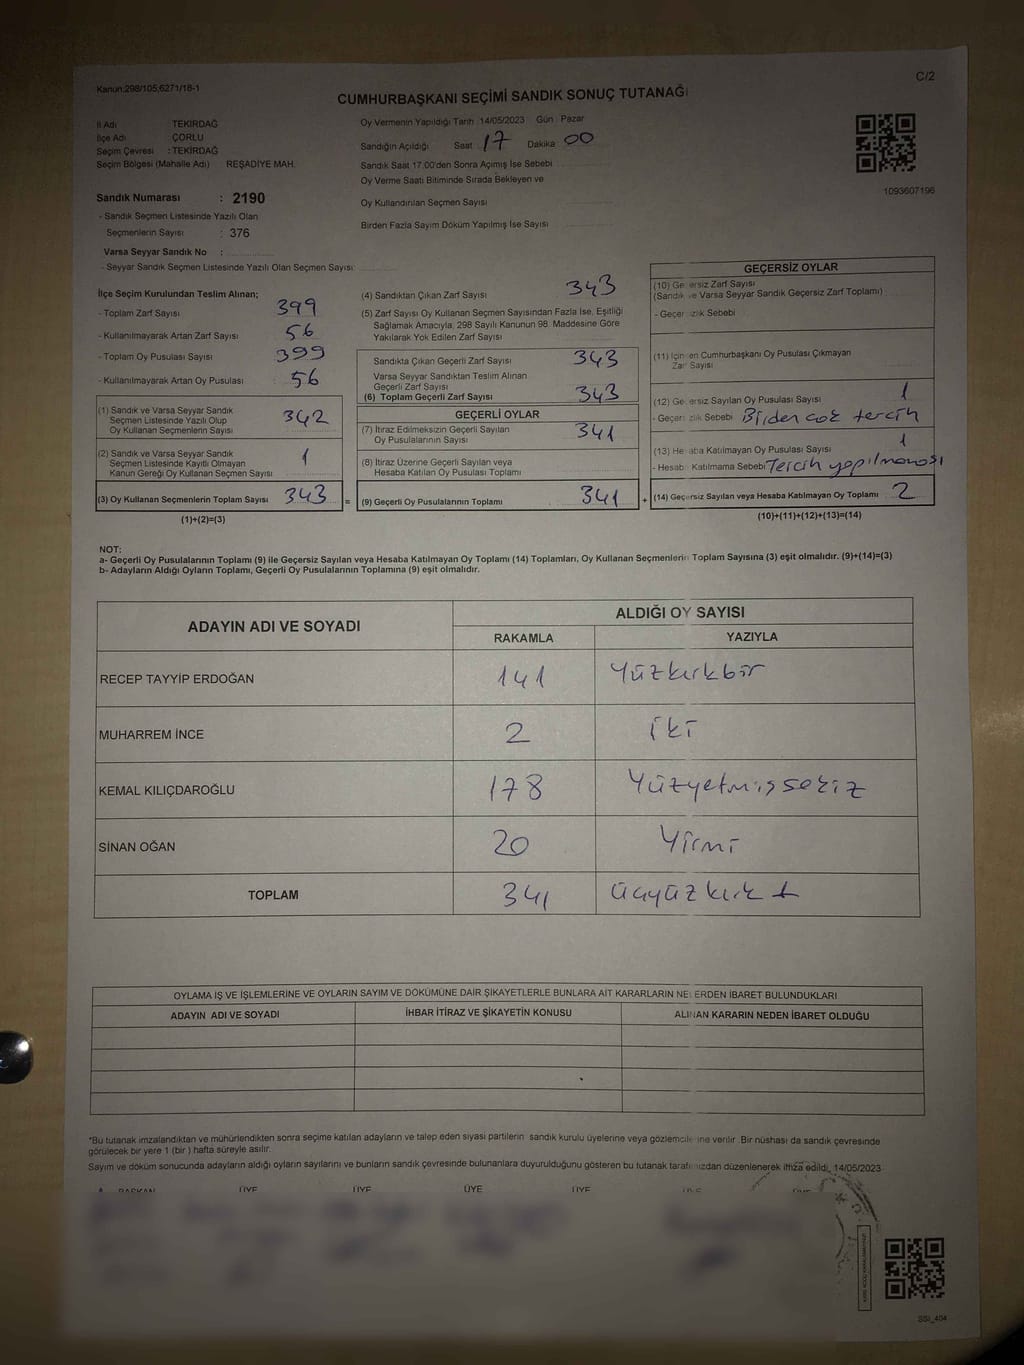 Kanun:298/105,6271/18-1
C/2
CUMHURBAŞKANI SEÇİMİ SANDIK SONUÇ TUTANAĞI
İl Adı TEKİRDAĞ
İlçe Adı ÇORLU
Seçim Çevresi : TEKİRDAĞ
Seçim Bölgesi (Mahalle Adı) REŞADİYE MAH.
Sandık Numarası : 2190
- Sandık Seçmen Listesinde Yazılı Olan
Seçmenlerin Sayısı : 376
Varsa Seyyar Sandık No :
- Seyyar Sandık Seçmen Listesinde Yazılı Olan Seçmen Sayısı
Oy Vermenin Yapıldığı Tarih 14/05/2023 Gün Pazar
Sandığın Açıldığı Saat 17 Dakika 00
Sandık Saat 17.00'den Sonra Açımış İse Sebebi
Oy Verme Saati Bitiminde Sırada Bekleyen ve
Oy Kullandırılan Seçmen Sayısı
Birden Fazla Sayım Döküm Yapılmış İse Sayısı
1093607196
İlçe Seçim Kurulundan Teslim Alınan;
- Toplam Zarf Sayısı 399
- Kullanılmayarak Artan Zarf Sayısı 56
- Toplam Oy Pusulası Sayısı 399
- Kullanılmayarak Artan Oy Pusulası : 56
(1) Sandık ve Varsa Seyyar Sandık
Seçmen Listesinde Yazılı Olup
Oy Kullanan Seçmenlerin Sayısı 342
(2) Sandık ve Varsa Seyyar Sandık
Seçmen Listesinde Kayıtlı Olmayan
Kanun Gereği Oy Kullanan Seçmen Sayısı 1
(3) Oy Kullanan Seçmenlerin Toplam Sayısı 343 =
(1)+(2)=(3)
(4) Sandıktan Çıkan Zarf Sayısı 343
(5) Zarf Sayısı Oy Kullanan Seçmen Sayısından Fazla İse, Eşitliği
Sağlamak Amacıyla, 298 Sayılı Kanunun 98. Maddesine Göre
Yakılarak Yok Edilen Zarf Sayısı
Sandıkta Çıkan Geçerli Zarf Sayısı 343
Varsa Seyyar Sandıktan Teslim Alınan
Geçerli Zarf Sayısı
(6) Toplam Geçerli Zarf Sayısı 343
GEÇERLİ OYLAR
(7) İtiraz Edilmeksizin Geçerli Sayılan
Oy Pusulalarının Sayısı 341
(8) İtiraz Üzerine Geçerli Sayılan veya
Hesaba Katılan Oy Pusulası Toplamı
(9) Geçerli Oy Pusulalarının Toplamı 341 +
GEÇERSİZ OYLAR
(10) Geçersiz Zarf Sayısı
(Sandık ve Varsa Seyyar Sandık Geçersiz Zarf Toplamı)
- Geçersizlik Sebebi
(11) İçinden Cumhurbaşkanı Oy Pusulası Çıkmayan
Zarf Sayısı
(12) Geçersiz Sayılan Oy Pusulası Sayısı 1
- Geçersizlik Sebebi Birden çok tercih
(13) Hesaba Katılmayan Oy Pusulası Sayısı 1
- Hesaba Katılmama Sebebi Tercih yapılmaması
(14) Geçersiz Sayılan veya Hesaba Katılmayan Oy Toplamı 2
(10)+(11)+(12)+(13)=(14)
NOT:
a- Geçerli Oy Pusulalarının Toplamı (9) ile Geçersiz Sayılan veya Hesaba Katılmayan Oy Toplamı (14) Toplamları, Oy Kullanan Seçmenlerin Toplam Sayısına (3) eşit olmalıdır. (9)+(14)=(3)
b- Adayların Aldığı Oyların Toplamı, Geçerli Oy Pusulalarının Toplamına (9) eşit olmalıdır.
ADAYIN ADI VE SOYADI
ALDIĞI OY SAYISI
RAKAMLA YAZIYLA
RECEP TAYYİP ERDOĞAN 141 Yüzkırkbir
MUHARREM İNCE 2 İki
KEMAL KILIÇDAROĞLU 178 Yüzyetmişsekiz
SİNAN OĞAN 20 Yirmi
TOPLAM 341 Üçyüzkırk
OYLAMA İŞ VE İŞLEMLERİNE VE OYLARIN SAYIM VE DÖKÜMÜNE DAİR ŞİKAYETLERLE BUNLARA AİT KARARLARIN NELERDEN İBARET BULUNDUKLARI
ADAYIN ADI VE SOYADI İHBAR İTİRAZ VE ŞİKAYETİN KONUSU ALINAN KARARIN NEDEN İBARET OLDUĞU
*Bu tutanak imzalandıktan ve mühürlendikten sonra seçime katılan adayların ve talep eden siyasi partilerin sandık kurulu üyelerine veya gözlemcilerine verilir. Bir nüshası da sandık çevresinde
görülecek bir yere 1 (bir) hafta süreyle asılır.
Sayım ve döküm sonucunda adayların aldığı oyların sayılarını ve bunların sandık çevresinde bulunanlara duyurulduğunu gösteren bu tutanak tarafımızdan düzenlenerek imza edildi. 14/05/2023
BAŞKAN ÜYE ÜYE ÜYE ÜYE ÜYE ÜYE
SSI_404